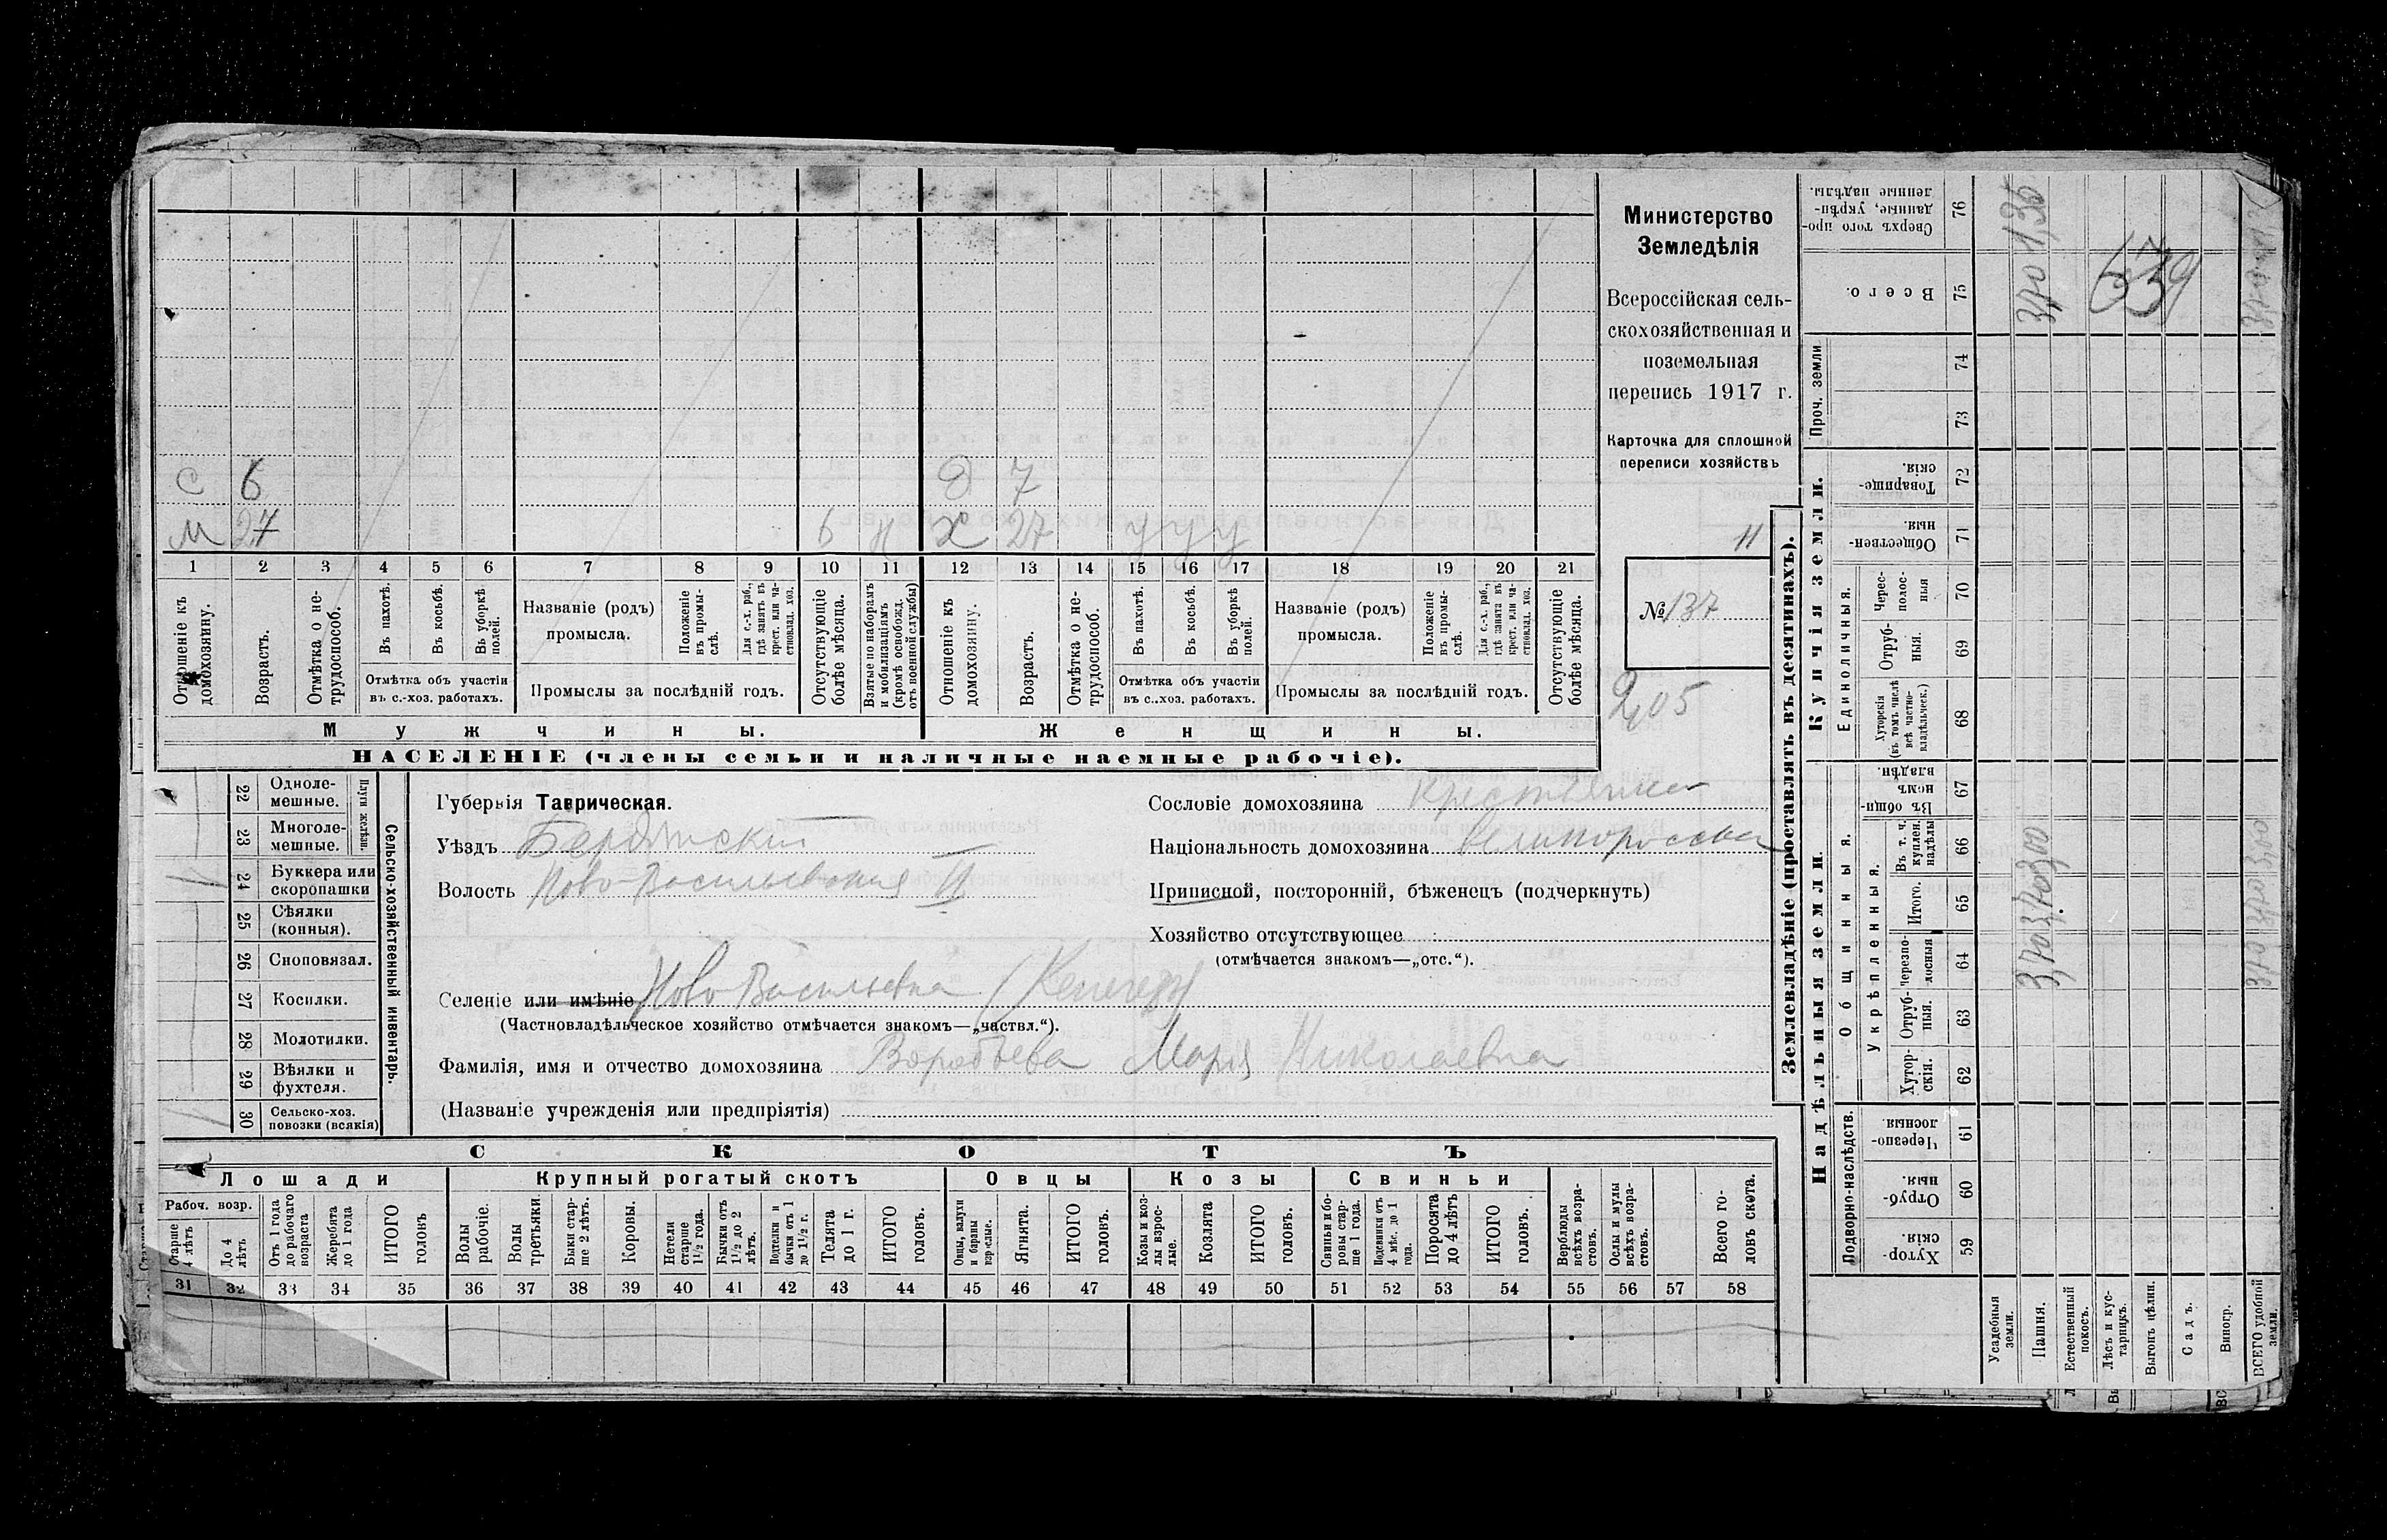 С 6 Д 7
М 27 6 н Х 27 у у у
1 2 3 4 5 6 7 8 9 10 11 12 13 14 15 16 17 18 19 20 21
Отношеніе къ домохозяину.
Возрастъ.
Отмѣтка о нетрудоспособ.
Въ пахотѣ.
Въ косьбѣ.
Въ уборкѣ полей.
Отмѣтка объ участіи
въ с.-хоз. работахъ.
Названіе (родъ)
промысла.
Положеніе въ промыслѣ.
Для с.-х. раб., гдѣ занятъ въ крест. или частновлад. хоз.
Промыслы за послѣдній годъ.
Отсутствующіе болѣе мѣсяца.
Взятые по наборамъ и мобилизаціямъ (кромѣ освобожд. отъ военной службы)
Отношеніе къ домохозяину.
Возрастъ.
Отмѣтка о нетрудоспособ.
Въ пахотѣ.
Въ косьбѣ.
Въ уборкѣ полей.
Отмѣтка объ участіи
въ с..хоз. работахъ.
Названіе (родъ)
промысла.
Положеніе въ промыслѣ.
Для с.-х. раб., гдѣ занята въ крест. или частновлад. хоз.
Промыслы за послѣдній годъ.
Отсутствующіе болѣе мѣсяца.
Мужчины. Женщины.
НАСЕЛЕНІЕ (члены семьи и наличные наемные рабочіе).
Министерство
Земледѣлія
Всероссійская сель-
скохозяйственная и
поземельная
перепись 1917 г.
Карточка для сплошной
переписи хозяйствъ
11
№ 137
2,05
Сельско-хозяйственный инвентарь.
Плуги желѣзн.
22 Одноле-
мешные.
23 Многоле-
мешные.
24 Буккера или
скоропашки
25 Сѣялки
(конныя).
26 Сноповязал.
27 Косилки.
28 Молотилки.
29 Вѣялки и
фухтеля.
30 Сельско-хоз.
повозки (всякія)
Губернія Таврическая.
Уѣздъ Бердянскій
Волость Ново-Васильевская II
Селеніе или имѣніе Ново Васильевка
(Частновладѣльческое хозяйство отмѣчается знакомъ—„частвл.“).
Фамилія, имя и отчество домохозяина Воробьева Марія Николаевна
(Названіе учрежденія или предпріятія)
Сословіе домохозяина крестьянка
Національность домохозяина великороссы
Приписной, посторонній, бѣженецъ (подчеркнуть)
Хозяйство отсутствующее
(отмѣчается знакомъ—„отс.“).
СКОТЪ
Лошади Крупный рогатый скотъ Овцы Козы Свиньи
Рабоч. возр.
Старше 4 лѣтъ
До 4 лѣтъ
Отъ 1 года до рабочаго возраста
Жеребята до 1 года
ИТОГО головъ
Волы рабочіе.
Волы третьяки.
Быки старше 2 лѣтъ.
Коровы.
Нетели старше 1 1/2 года.
Бычки отъ 1 1/2 до 2 лѣтъ.
Подтелки и бычки отъ 1 до 1 1/2 г.
Телята до 1 г.
ИТОГО головъ.
Овцы, валухи и бараны взрослые.
Ягнята.
ИТОГО головъ.
Козы и козлы взрослые.
Козлята
ИТОГО головъ.
Свиньи и боровы старше 1 года.
Подсвинки отъ 4 мѣс. до 1 года.
Поросята до 4 лѣтъ
ИТОГО головъ.
Верблюды всѣхъ возрастовъ.
Ослы и мулы всѣхъ возрастовъ.
Всего головъ скота.
31 32 33 34 35 36 37 38 39 40 41 42 43 44 45 46 47 48 49 50 51 52 53 54 55 56 57 58
Землевладѣніе (проставлять въ десятинахъ).
Надѣльныя земли. Купчія земли. Проч. земли
Подворно-наслѣдств. Общинныя. Единоличныя.
Укрѣпленныя.
59 Хуторскія.
60 Отрубныя.
61 Черезполосныя.
62 Хуторскія.
63 Отрубныя.
64 Черезполосныя
65 Итого.
66 Въ т. ч. куплен. надѣлы
67 Въ общинномъ владѣн.
68 Хуторскія (въ томъ числѣ всѣ частновладѣльческ.)
69 Отрубныя.
70 Чересполосныя
71 Общественныя.
72 Товарищескія.
73
74
75 Всего.
76 Сверхъ того проданные, укрѣпленные надѣлы.
Усадебныя земли.
Пашня. 3,70 3,70 3,00 3,70 1,35
Естественный покосъ.
Лѣсъ и кустарникъ.
Выгонъ цѣлин.
Садъ.
Виногр.
ВСЕГО удобной земли. 3,70 3,70 3,00
639